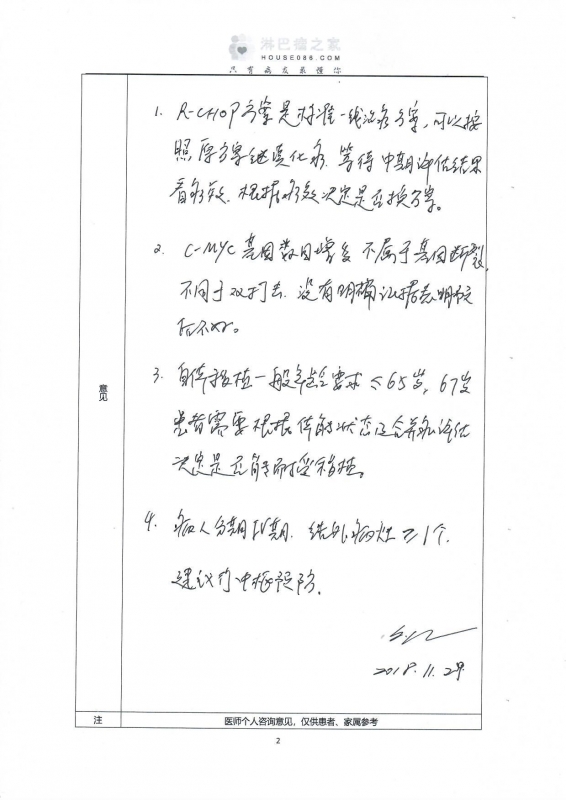 淋巴瘤之家
HOUSE086.COM
只有病友最懂你
1. R-CHOP方案是标准一线治疗方案,可以按
照原方案继续化疗.等待中期评估结果
看疗效.根据疗效决定是否换方案。
2. C-MYC基因数目增多 不属于基因断裂,
不同于双打击.没有明确证据表明预
后不好。
3. 自体移植一般年龄要求≤65岁,67岁
患者需要根据体能状态及合并症评估
决定是否能耐受移植。
意见
4. 病人分期IV期.结外病灶≥1个.
建议行中枢预防.
2018.11.29
注
医师个人咨询意见,仅供患者、家属参考
2